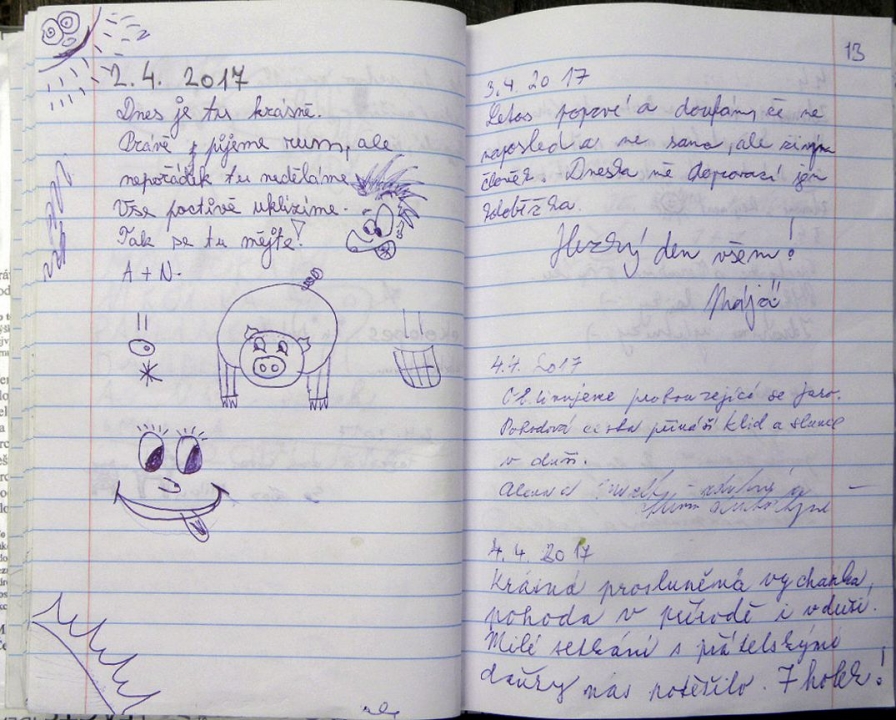 2.4. 2017
Dnes je tu krásně.
Právě pijeme rum, ale
nepořádek tu neděláme
Vše poctivě uklízíme.
Tak se tu mějte!
A + N.
13
3.4 2017
Letos poprvé a doufám, že ne
naposled a ne sama, ale
člověk. Dneska mě doprovází jen
koloběžka.
Hezký den všem!
Majá
4.4. 2017
se jaro.
Pohodová cesta přináší klid a slunce
v duši.
4.4. 2017
Krásná prosluněná vycházka,
pohoda v přírodě i v duši.
Milé setkání s přátelskými
nás potěšilo. 7 holek!